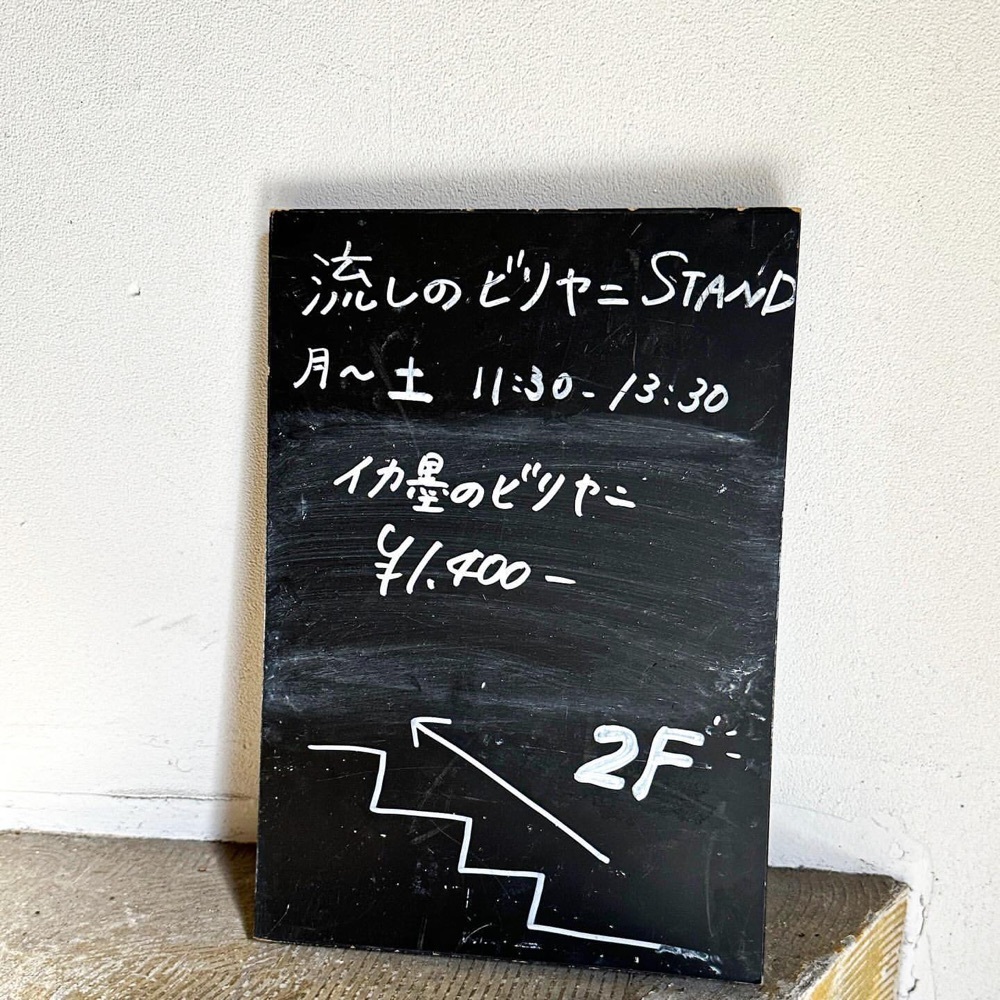 流しのビリヤニ STAND
月〜土 11:30-13:30
イカ墨のビリヤニ
¥1.400-
2F